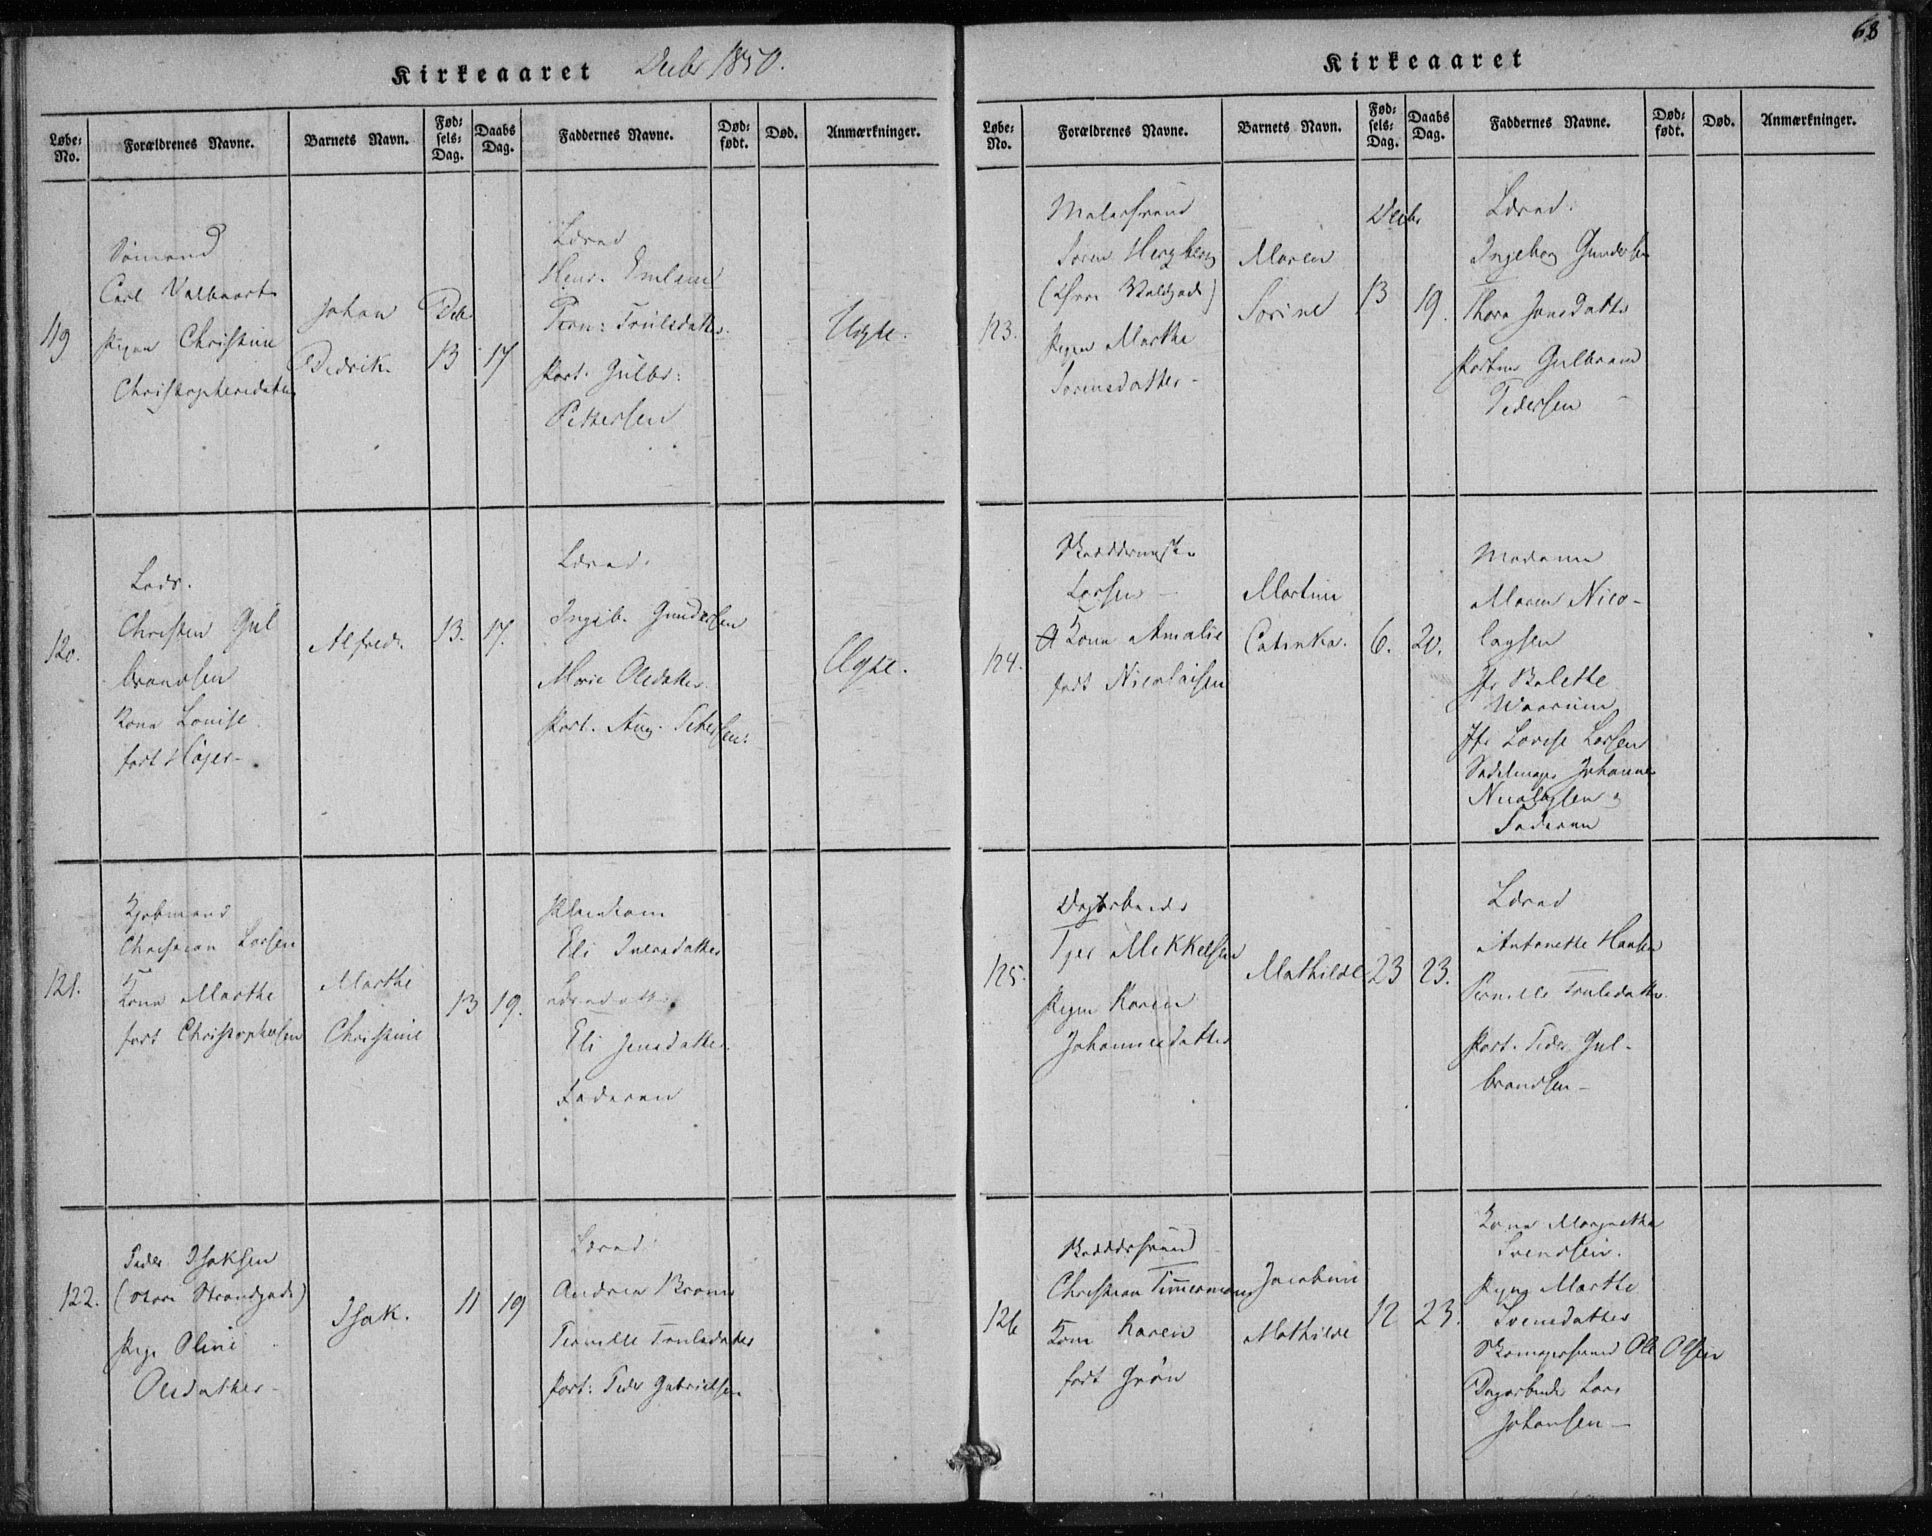 68
Kirkeaaret Decbr 1850.
Løbe-No. Forældrenes Navne. Barnets Navn. Fødselsdag. Daabs Dag. Faddernes Navne. Dødfødt. Død. Anmærkninger.
119
Sømand
Carl
Pigen Christine
Christophersdatter
Johan
Didrik.
Decb
13 17
Henr.
Trulsdatter.
Port. Gulbr:
Pettersen
Uægte.
120.
Lods.
Christen Gul
brandsen
Kone Louise
født Höjer
Alfred.
13. 17.
Ingeb. Gundersen
Marie Olsdatter.
Port. Aug. Petersen.
121.
Kjøbmand
Christian Larsen
Kone Marthe
født Christophersen
Marthe
Christine
13 19.
Eli Iversdatter
Eli Jensdatter
Faderen
122.
Peder Isaksen
(store Strandgade)
Pige Oline
Olsdatter
Isak.
11 19
Andrea
Pernille Trulsdatter
Port: Peder Gabrielsen
Kirkeaaret
Løbe-No. Forældrenes Navne. Barnets Navn. Fødselsdag. Daabs Dag. Faddernes Navne. Dødfødt. Død. Anmærkninger.
123.
Malersvend
Søren Hergberg
Pigen Marthe
Sorensdatter
Maren
Sorine
Decbr
13 19.
Ingeborg Gundersen
Thora Jonsdatter
Portner Gulbrand
Pedersen
124.
Larsen
Kone Amalie
født Nicolaisen
Martine
Catinka.
6. 20.
Madame
Maren Nico-
laysen
Jfr Bolette
Jfr Lovise Larsen
Sadelmager Johannes
Nicolaysen
Faderen
125.
Dagarbeider
Mekkelsen
Pigen Karen
Johannesdatter
Mathilde
23 23.
Antonette Hansen
Pernille Trulsdatter.
Port. Peder Gul-
brandsen
126
Christian Timmermann
Kone Karen
født Grön
Jacobine
Mathilde
12 23.
Kone Margrethe
Svendsen.
Pigen Marthe
Svensdatter
Skomagersvend Ole Olsen
Dagarbeider Lars
Johansen